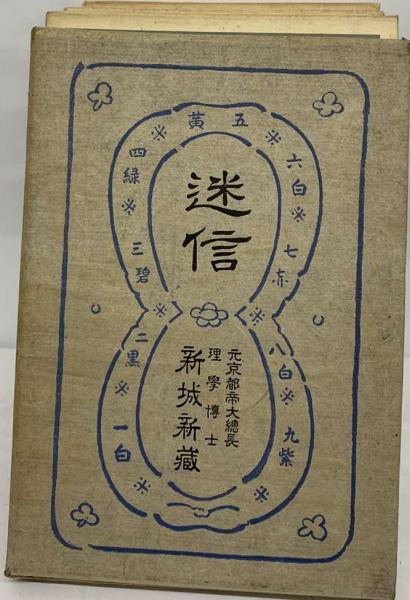 迷信
元京都帝大總長
理學博士
新城新藏
一白
二黒
三碧
四緑
五黄
六白
七赤
八白
九紫